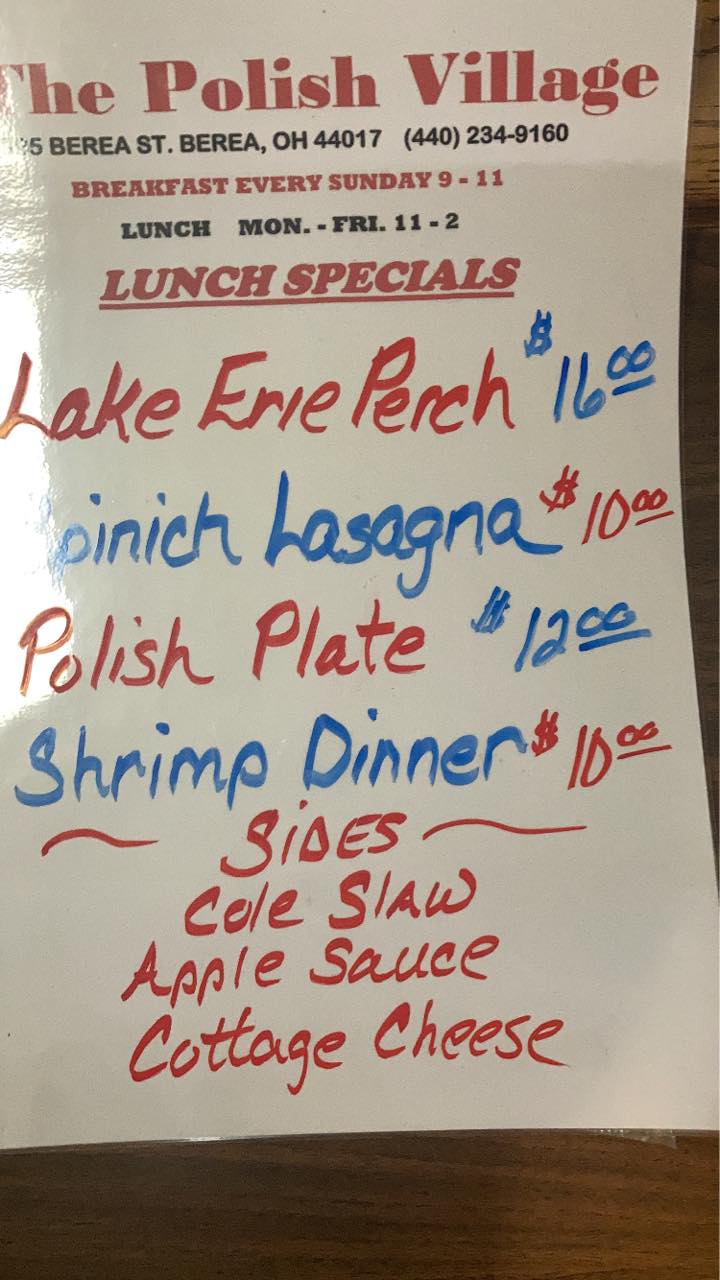 The Polish Village
5 BEREA ST. BEREA, OH 44017 (440) 234-9160
BREAKFAST EVERY SUNDAY 9 - 11
LUNCH MON. - FRI. 11 - 2
LUNCH SPECIALS
Lake Erie Perch $16.00
pinich Lasagna $10.00
Polish Plate $12.00
Shrimp Dinner $10.00
SiDES
Cole Slaw
Apple Sauce
Cottage Cheese